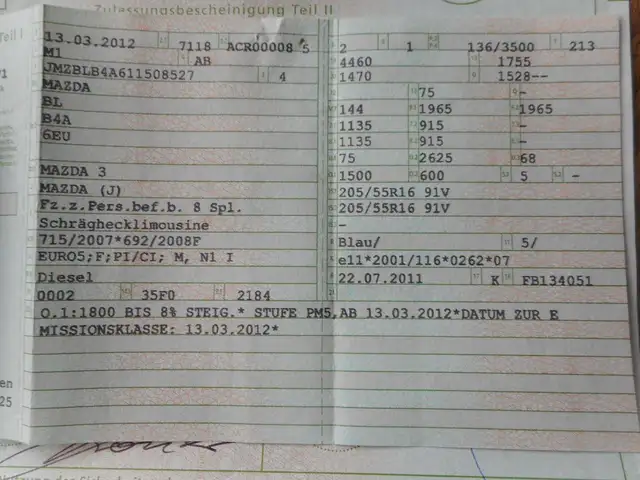 Zulassungsbescheinigung Teil II
13.03.2012 7118 ACR00008 5
M1 AB
JMZBLB4A611508527 4
MAZDA
BL
B4A
6EU
MAZDA 3
MAZDA (J)
Fz.z.Pers.bef.b. 8 Spl.
Schräghecklimousine
715/2007*692/2008F
EURO5;F;PI/CI; M, N1 I
Diesel
0002 35F0 2184
2 1 136/3500 213
4460 1755
1470 1528--
75 -
144 1965 1965
1135 915 -
1135 915 -
75 2625 68
1500 600 5 -
205/55R16 91V
205/55R16 91V
-
Blau/ 5/
e11*2001/116*0262*07
22.07.2011 K FB134051
O.1:1800 BIS 8% STEIG.* STUFE PM5,AB 13.03.2012*DATUM ZUR E
MISSIONSKLASSE: 13.03.2012*
en
25